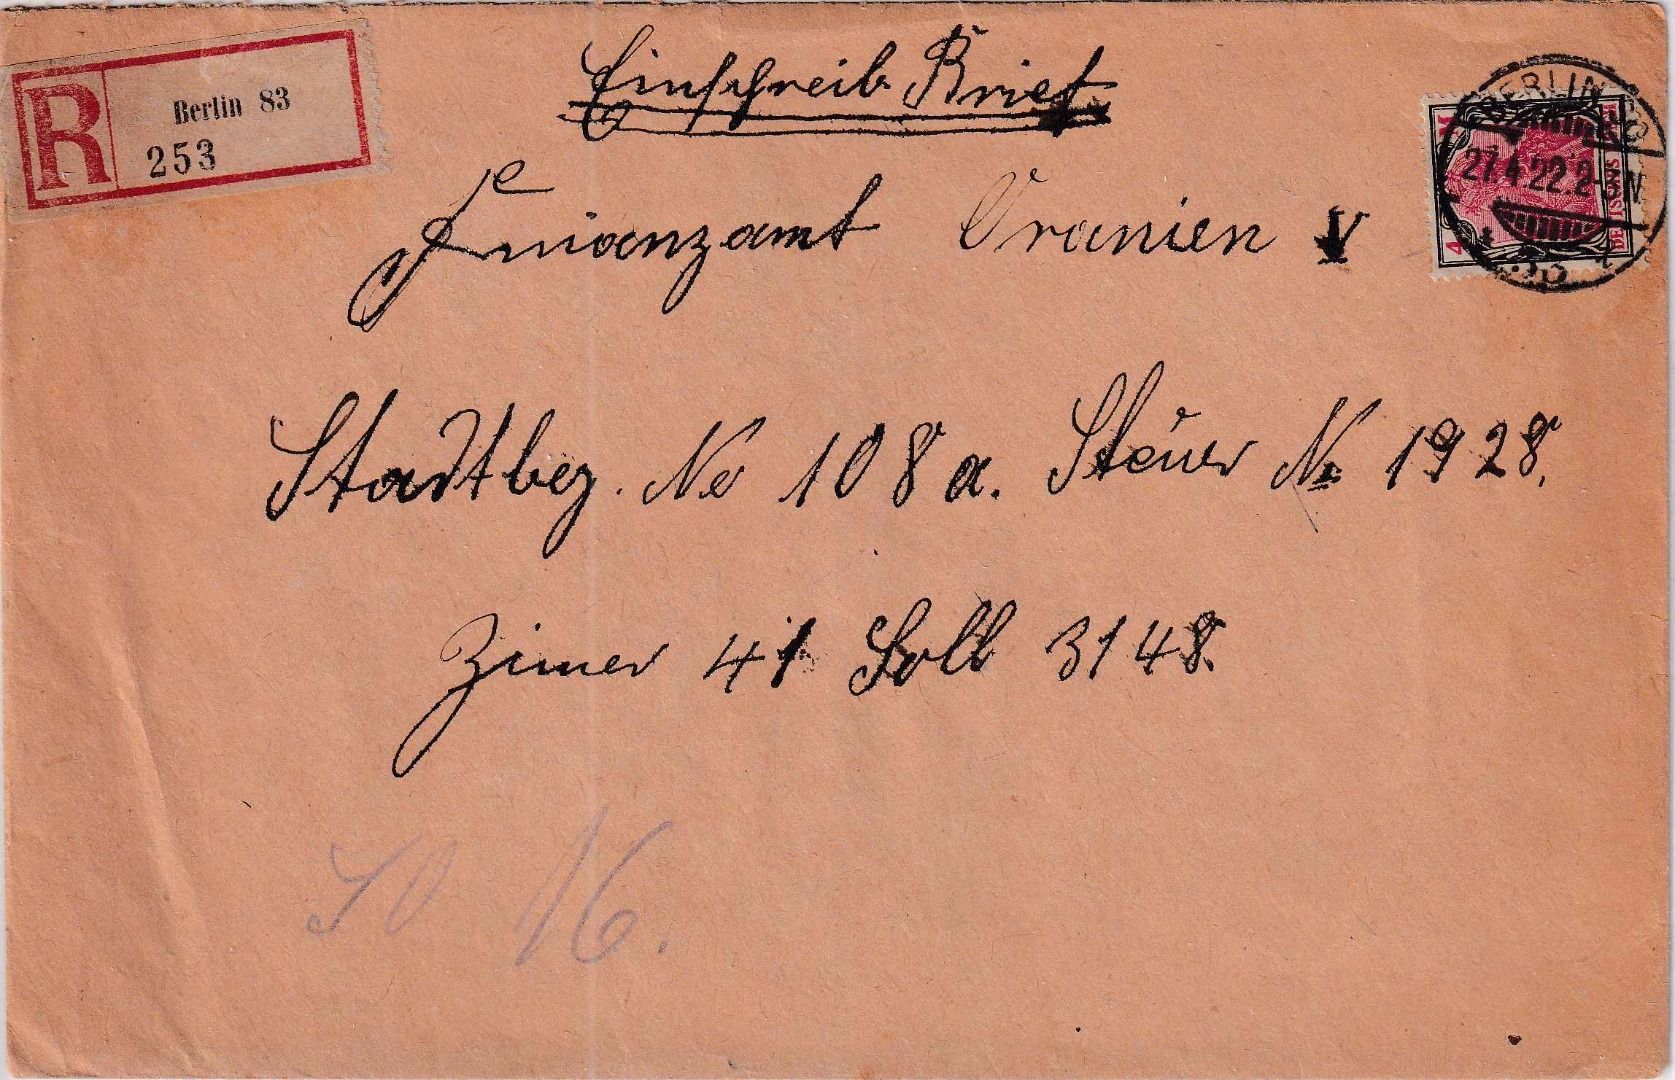 R Berlin 83
253
Einschreib. Brief
BERLIN SO
27.4.22.2-3N
DEUTSCHES
4
Finanzamt Oranien V
Stadtbez. No 108a. Steuer No 1928.
Zimer 41 Soll 3148.
SO 16.